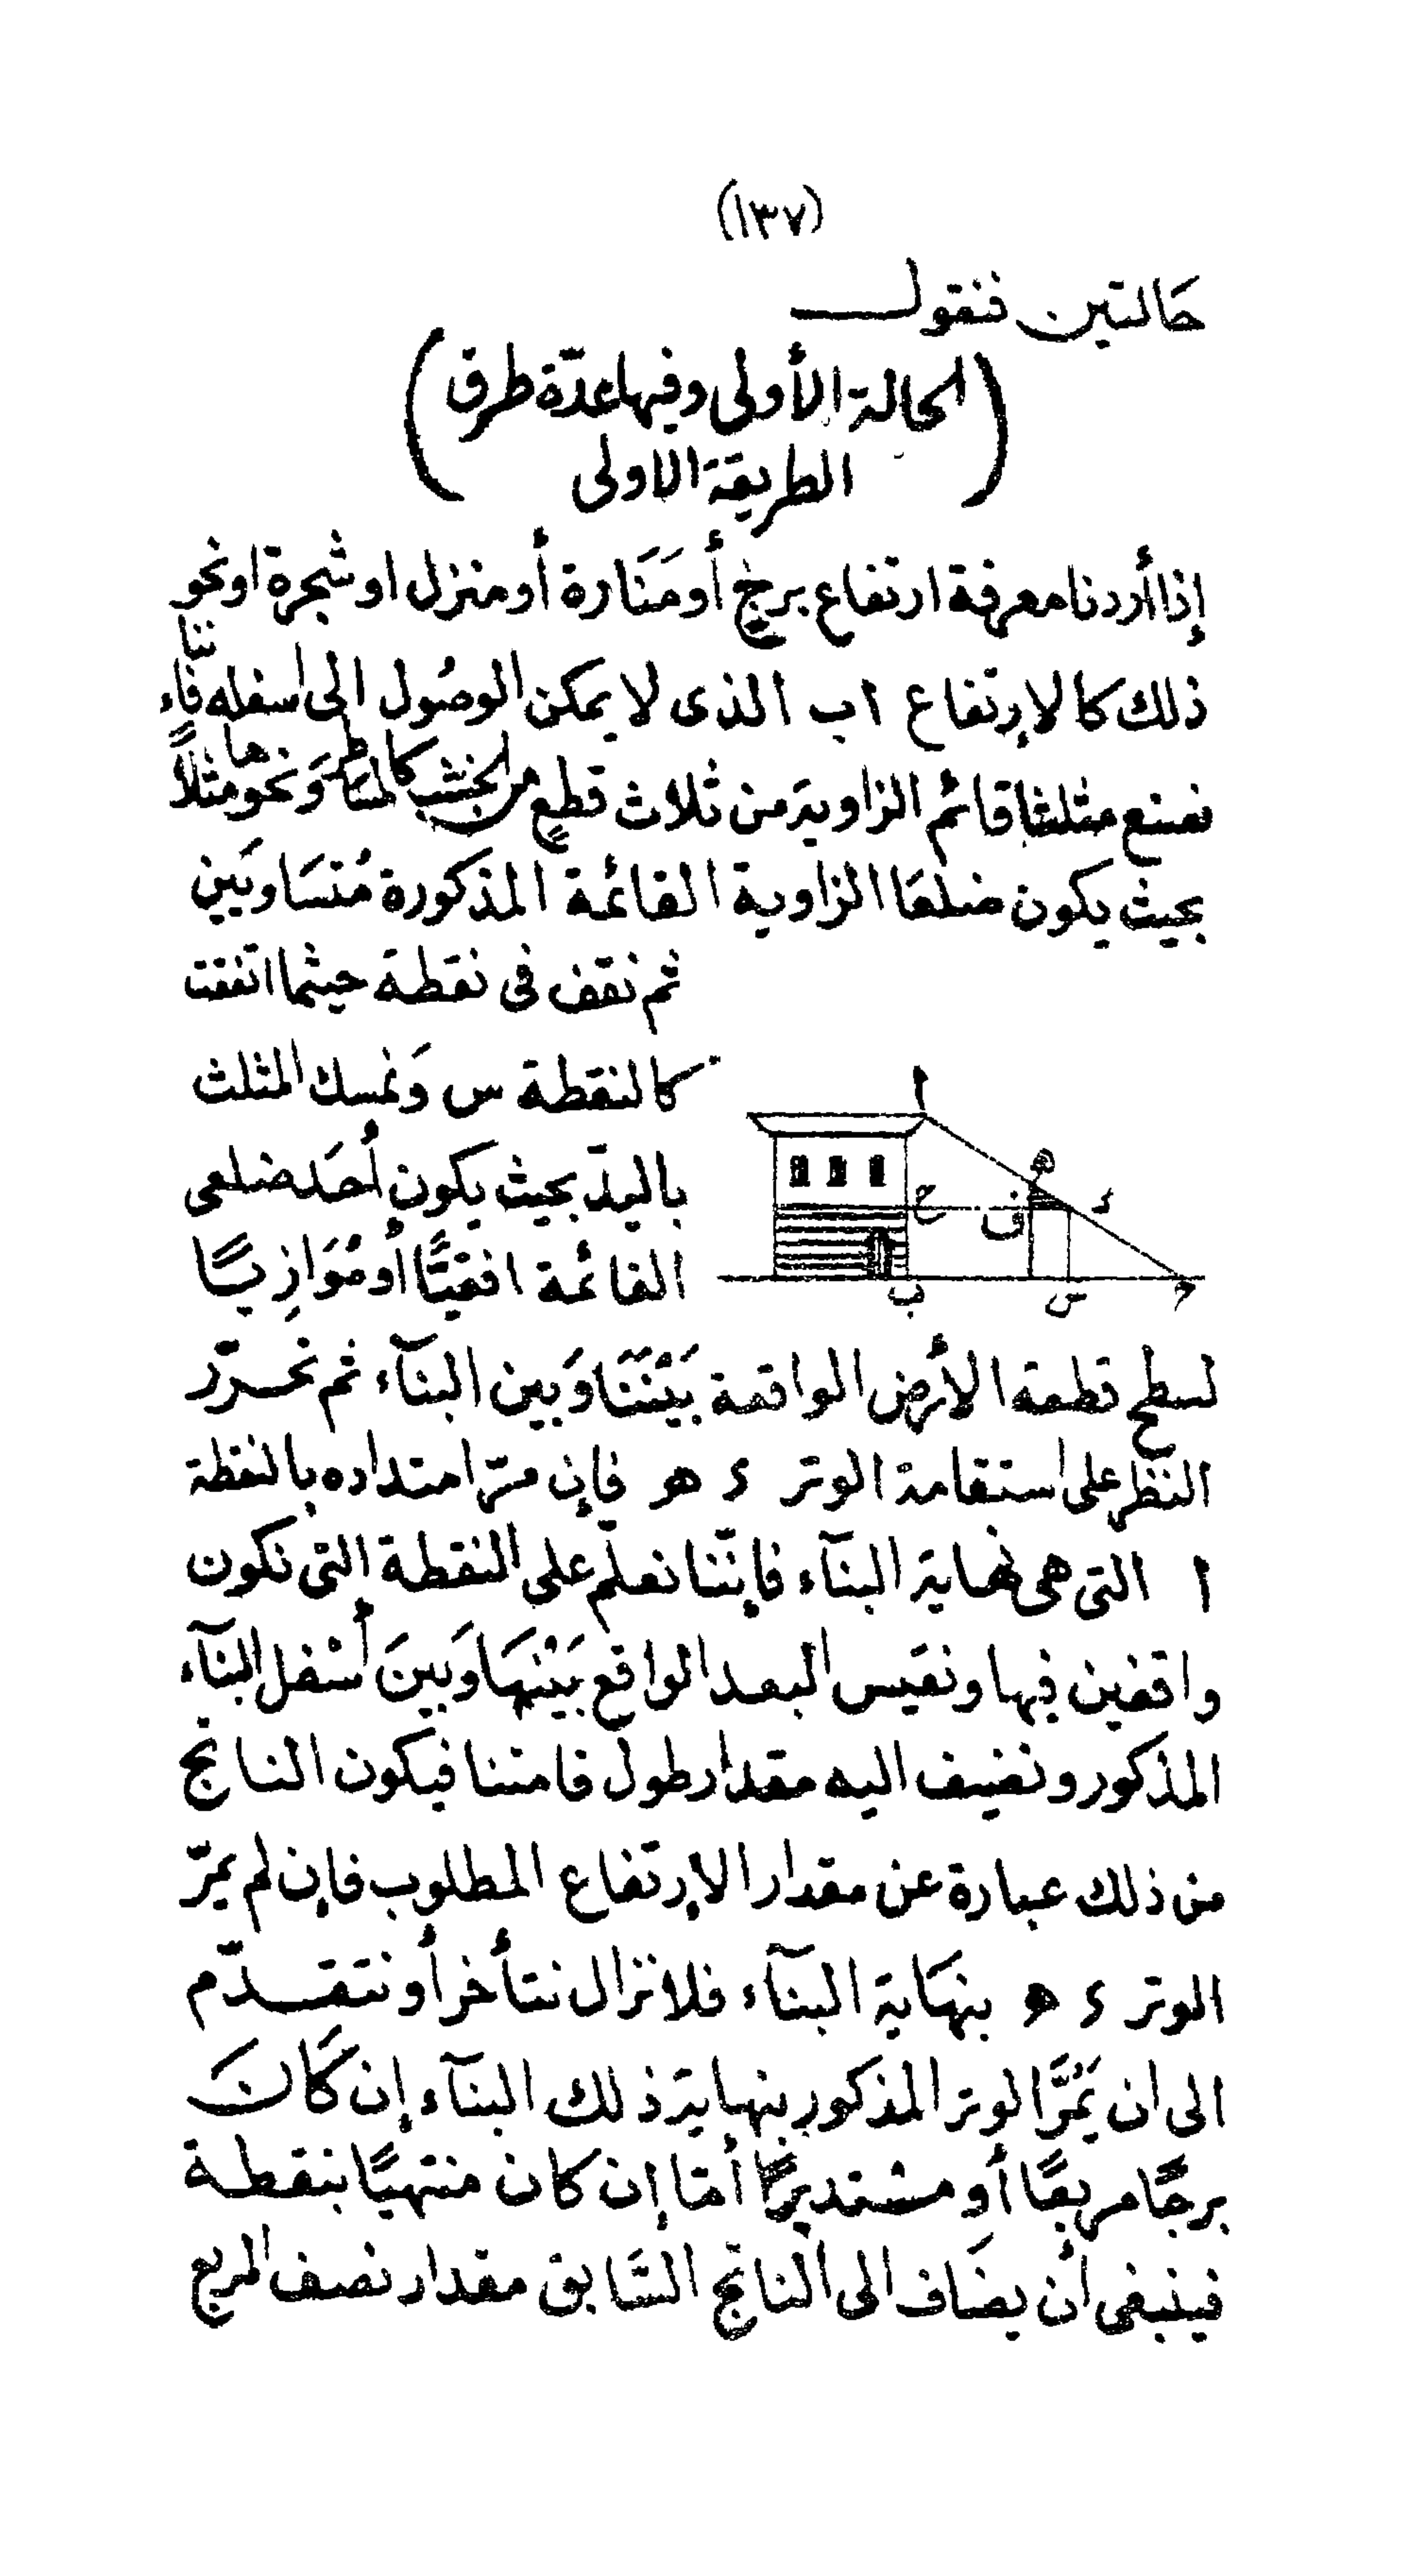 (١٣٧)
حَالتين فنقول
(الحالة الأولى وفيها عدّة طرق
الطريقة الاولى)
إذا أردنا معرفة ارتفاع برج أو مَنَارة أو منزل او شجرة او نحو
ذلك كالإرتفاع اب الذى لا يمكن الوصُول الى اسفله فإننا
نصنع مثلثا قائم الزاوية من ثلاث قطعٍ من الخشب كالمساطر وَنحوها مثلاً
بحيث يكون ضلعَا الزاوية القائمة المذكورة مُتسَاويَين
ثم نقف فى نقطة حيثما اتفقت
كالنقطة س وَنمسك المثلث
باليدّ بحيث يكون أحَد ضلعى
القائمة افقيًّا أو مُوَازِيًا
ا
ه
د
ح
ف
ب
س
حـ
لسطح قطعة الأرض الواقعة بَيْنَنَا وَبين البنآء ثم نحرّر
النظر على استقامة الوتر ء هـ فإن مرّ امتداده بالنقطة
ا التى هى نهاية البنآء فإنّنا نعلّم على النقطة التى نكون
واقفين فيها ونقيس البعد الواقع بَيْنهَا وَبينَ أسْفل البنآء
المذكور ونضيف اليه مقدار طول قامتنا فيكون الناتج
من ذلك عبارة عن مقدار الإرتفاع المطلوب فإن لم يمرّ
الوتر ء ه بنهَاية البنآء فلا نزال نتأخر أو نتقدّم
الى ان يَمُرَّ الوتر المذكور بنهاية ذلك البنآء إن كَانَ
برجًا مربعًا أو مستديرًا أمّا إن كان منتهيًا بنقطة
فينبغى أن يضَاف الى الناتج السَّابق مقدار نصف المربع